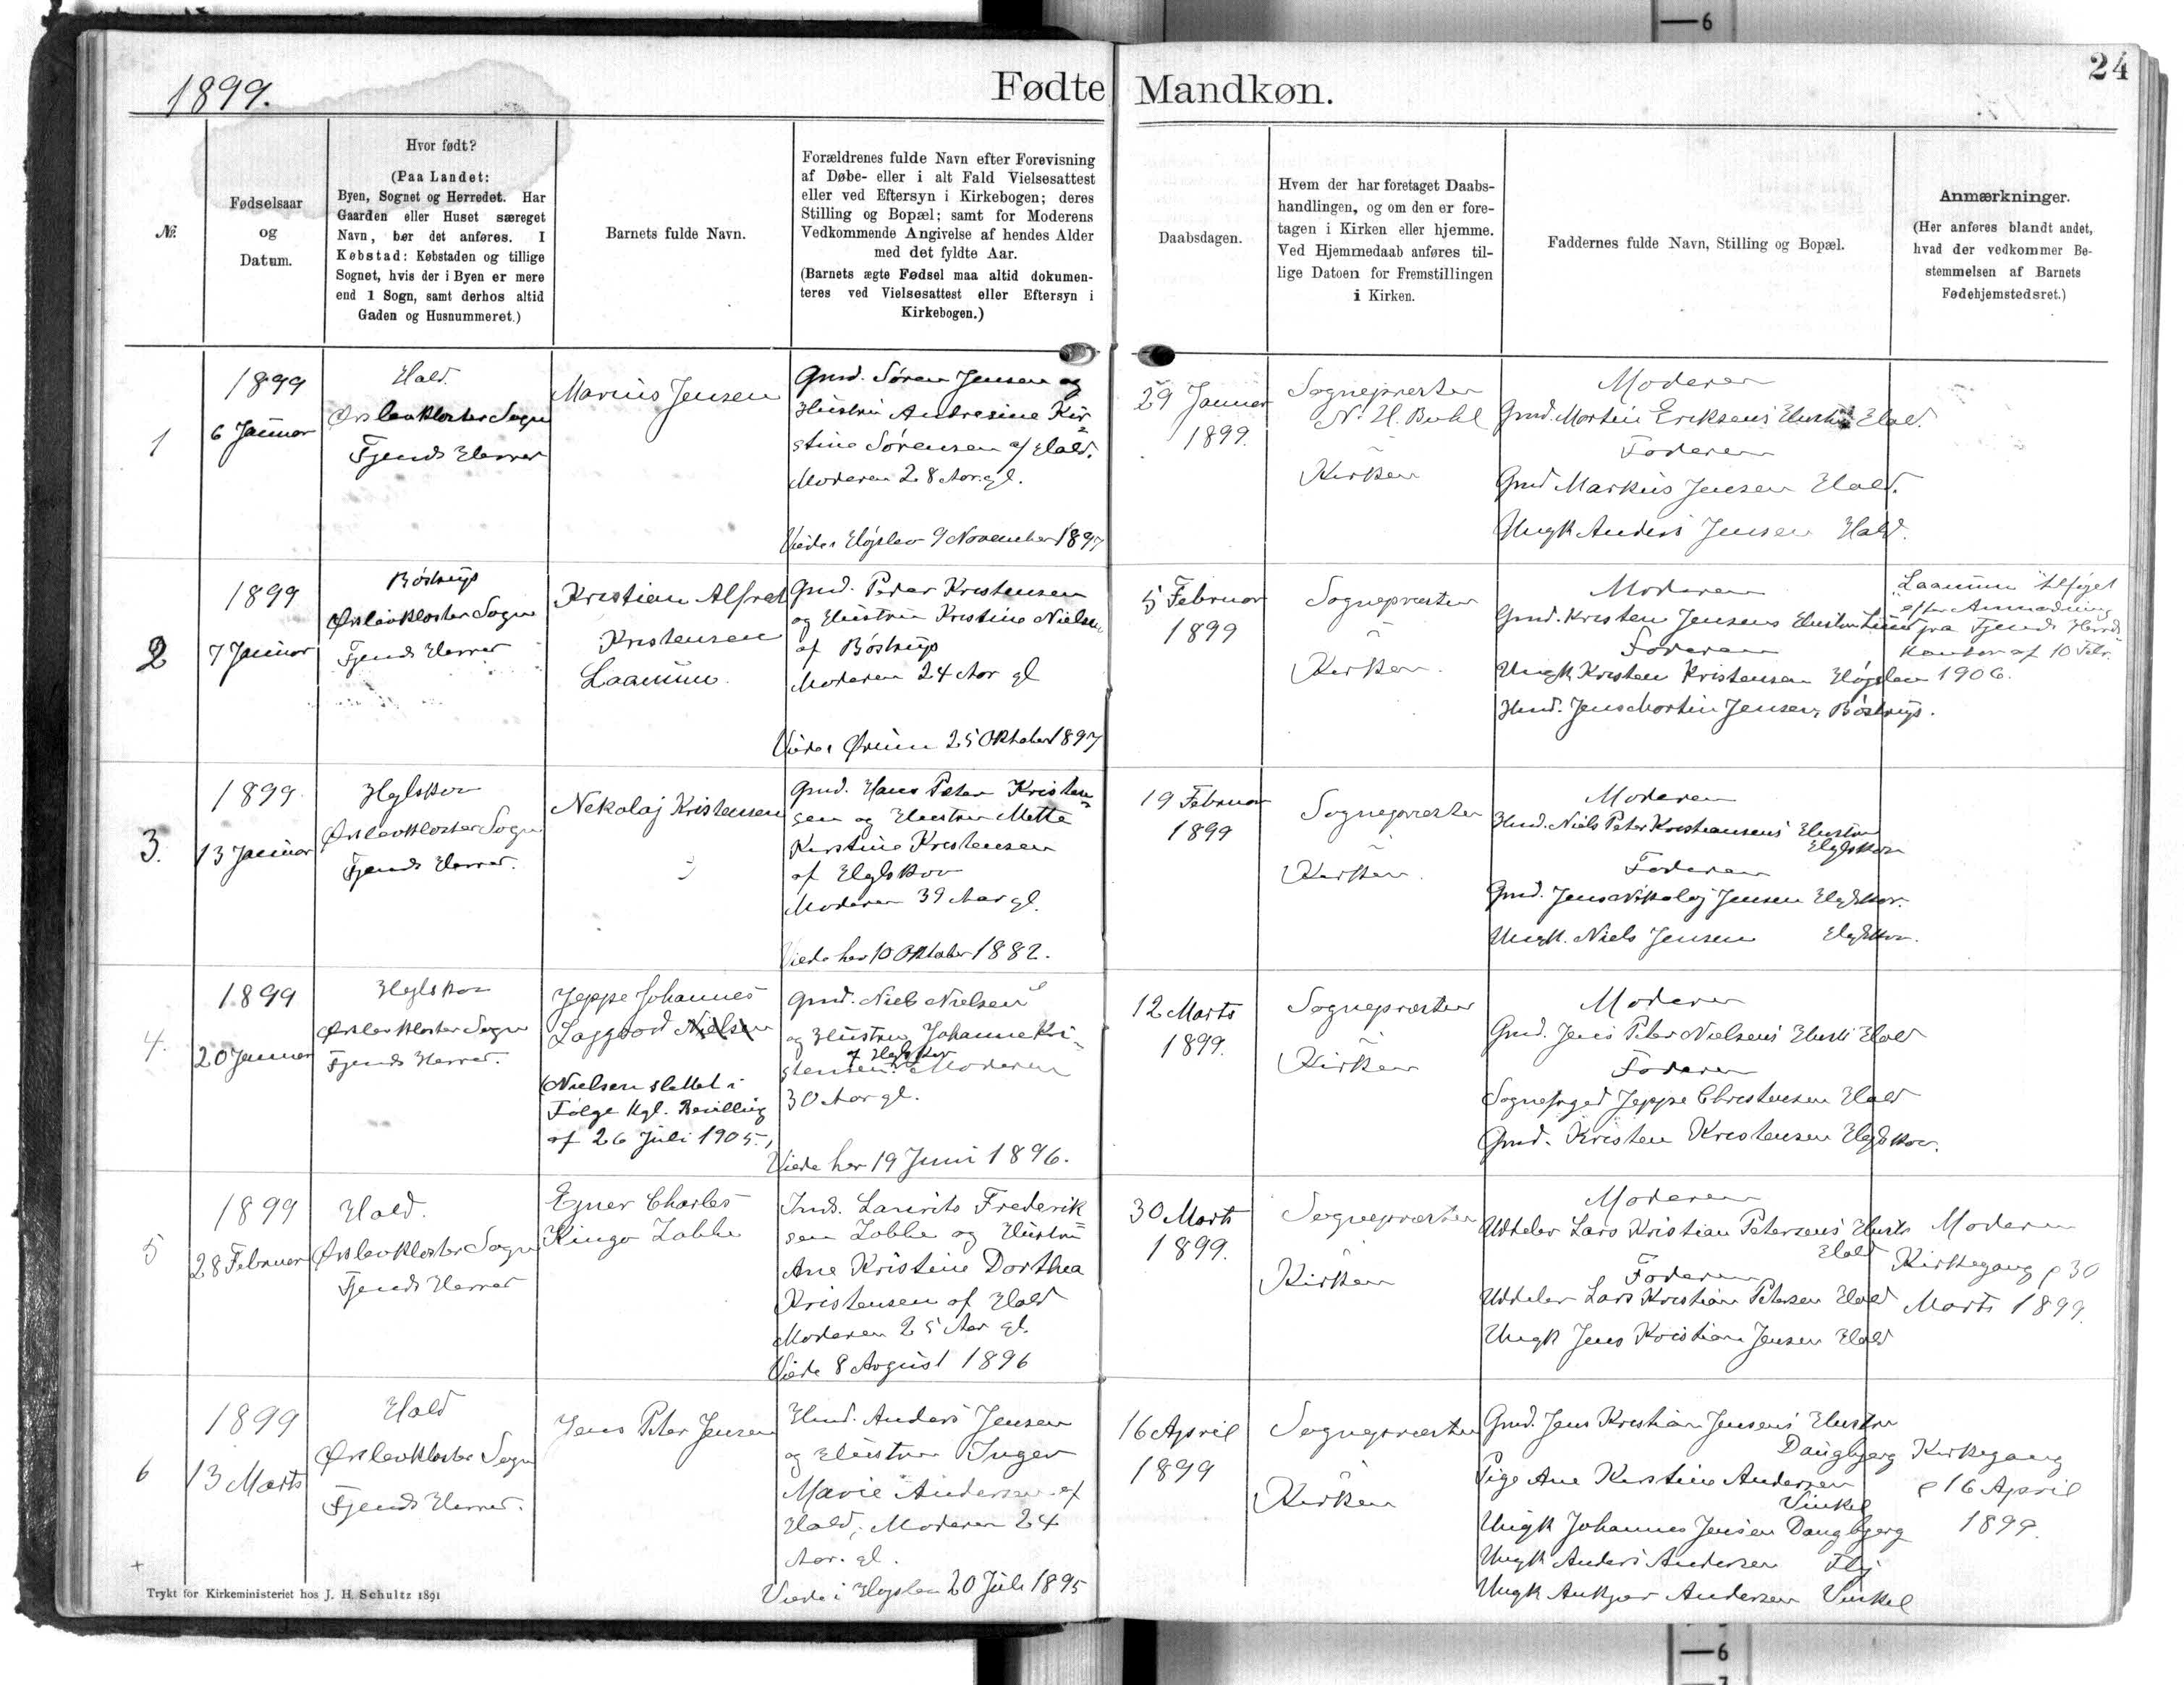 6
24
1899.
Fødte Mandkøn.
№.
Fødselsaar
og
Datum.
Hvor født?
(Paa Landet:
Byen, Sognet og Herredet. Har
Gaarden eller Huset særeget
Navn, bør det anføres. I
Købstad: Købstaden og tillige
Sognet, hvis der i Byen er mere
end 1 Sogn, samt derhos altid
Gaden og Husnummeret.)
Barnets fulde Navn.
Forældrenes fulde Navn efter Forevisning
af Døbe- eller i alt Fald Vielsesattest
eller ved Eftersyn i Kirkebogen; deres
Stilling og Bopæl; samt for Moderens
Vedkommende Angivelse af hendes Alder
med det fyldte Aar.
(Barnets ægte Fødsel maa altid dokumen-
teres ved Vielsesattest eller Eftersyn i
Kirkebogen.)
Daabsdagen.
Hvem der har foretaget Daabs-
handlingen, og om den er fore-
tagen i Kirken eller hjemme.
Ved Hjemmedaab anføres til-
lige Datoen for Fremstillingen
i Kirken.
Faddernes fulde Navn, Stilling og Bopæl.
Anmærkninger.
(Her anføres blandt andet,
hvad der vedkommer Be-
stemmelsen af Barnets
Fødehjemstedsret.)
1
1899
6 Januar
Hald.
Ørslevkloster Sogn
Fjends Herred
Marius Jensen
Gmd. Søren Jensen og
Hustru Andresine Kir-
stine Sørensen af Hald.
Moderen 28 Aar gl.
Viede i Højslev 9 November 1897
29 Januar
1899.
Sognepræsten
N. H. Buhl
Kirken
Moderen
Gmd. Martin Eriksens Hustru Hald.
Faderen
Gmd Markus Jensen Hald.
Ungk Anders Jensen Hald.
2
1899
7 Januar
Bøstrup
Ørslevkloster Sogn
Fjends Herred
Kristian Alfred
Kristensen
Laanum.
Gmd. Peder Kristensen
og Hustru Kristine Nielsen
af Bøstrup
Moderen 24 Aar gl
Viede i Ørum 25 Oktober 1897
5 Februar
1899
Sognepræsten
Kirken.
Moderen
Gmd. Kristen Jensens Hustru
Faderen
Ungk Kristen Kristensen Højslev
Hmd. Jens Martin Jensen, Bøstrup.
Laanum tilføjet
efter Anmodning
fra Fjends Herreds
Kontor af 10 Febr.
1906.
3.
1899
13 Januar
Hejlskov
Ørslevkloster Sogn
Fjends Herred.
Nekolaj Kristensen
Gmd. Hans Peter Kristen-
sen og Hustru Mette
Kirstine Kristensen
af Hejlskov
Moderen 39 Aar gl.
Viede her 10 Oktober 1882.
19 Februar
1899
Sognepræsten
Kirken.
Moderen
Hmd. Niels Peter Kristiansens Hustru
Hejlskov
Faderen
Gmd. Jens Nikolaj Jensen Hejlskov.
Ungk. Niels Jensen Hejlskov.
4.
1899
20 Januar
Hejlskov
Ørslevkloster Sogn
Fjends Herred.
Jeppe Johannes
Laggaard Nielsen
(Nielsen slettet i
Følge kgl. Bevilling
af 26 Juli 1905.)
Gmd. Niels Nielsen
og Hustru Johanne Kri-
af Hejlskov
stensen. Moderen
30 Aar gl.
Viede her 19 Juni 1896.
12 Marts
1899.
Sognepræsten
Kirken
Moderen
Gmd. Jens Peter Nielsens Hustr Hald
Faderen
Sognefoged Jeppe Christensen Hald
Gmd. Kristen Kristensen Hejlskov.
5
1899
28 Februar
Hald.
Ørslevkloster Sogn
Fjends Herred
Ejner Charles
Kingo Lobbe
Inds. Laurits Frederik
sen Lobbe og Hustru
Ane Kristine Dorthea
Kristensen af Hald
Moderen 25 Aar gl.
Viede 8 August 1896
30 Marts
1899.
Sognepræsten
Kirken
Moderen
Uddeler Lars Kristian Petersens Hustr
Hald
Faderen
Uddeler Lars Kristian Petersen Hald
Ungk Jens Kristian Jensen Hald
Moderen
Kirkegang d 30
Marts 1899.
6
1899
13 Marts
Hald
Ørslevkloster Sogn
Fjends Herred.
Jens Peter Jensen
Hmd. Anders Jensen
og Hustru Inger
Marie Andersen af
Hald, Moderen 24
Aar. gl.
Viede i Højslev 20 Juli 1895
16 April
1899
Sognepræsten
Kirken
Gmd. Jens Kristian Jensens Hustru
Daugbjerg
Pige Ane Kirstine Andersen
Vinkel
Ungk Johannes Jensen Daugbjerg
Ungk Anders Andersen Fly
Ungk Ankjær Andersen Vinkel
Kirkegang
d 16 April
1899.
+
Trykt for Kirkeministeriet hos J. H. Schultz 1891
6
7